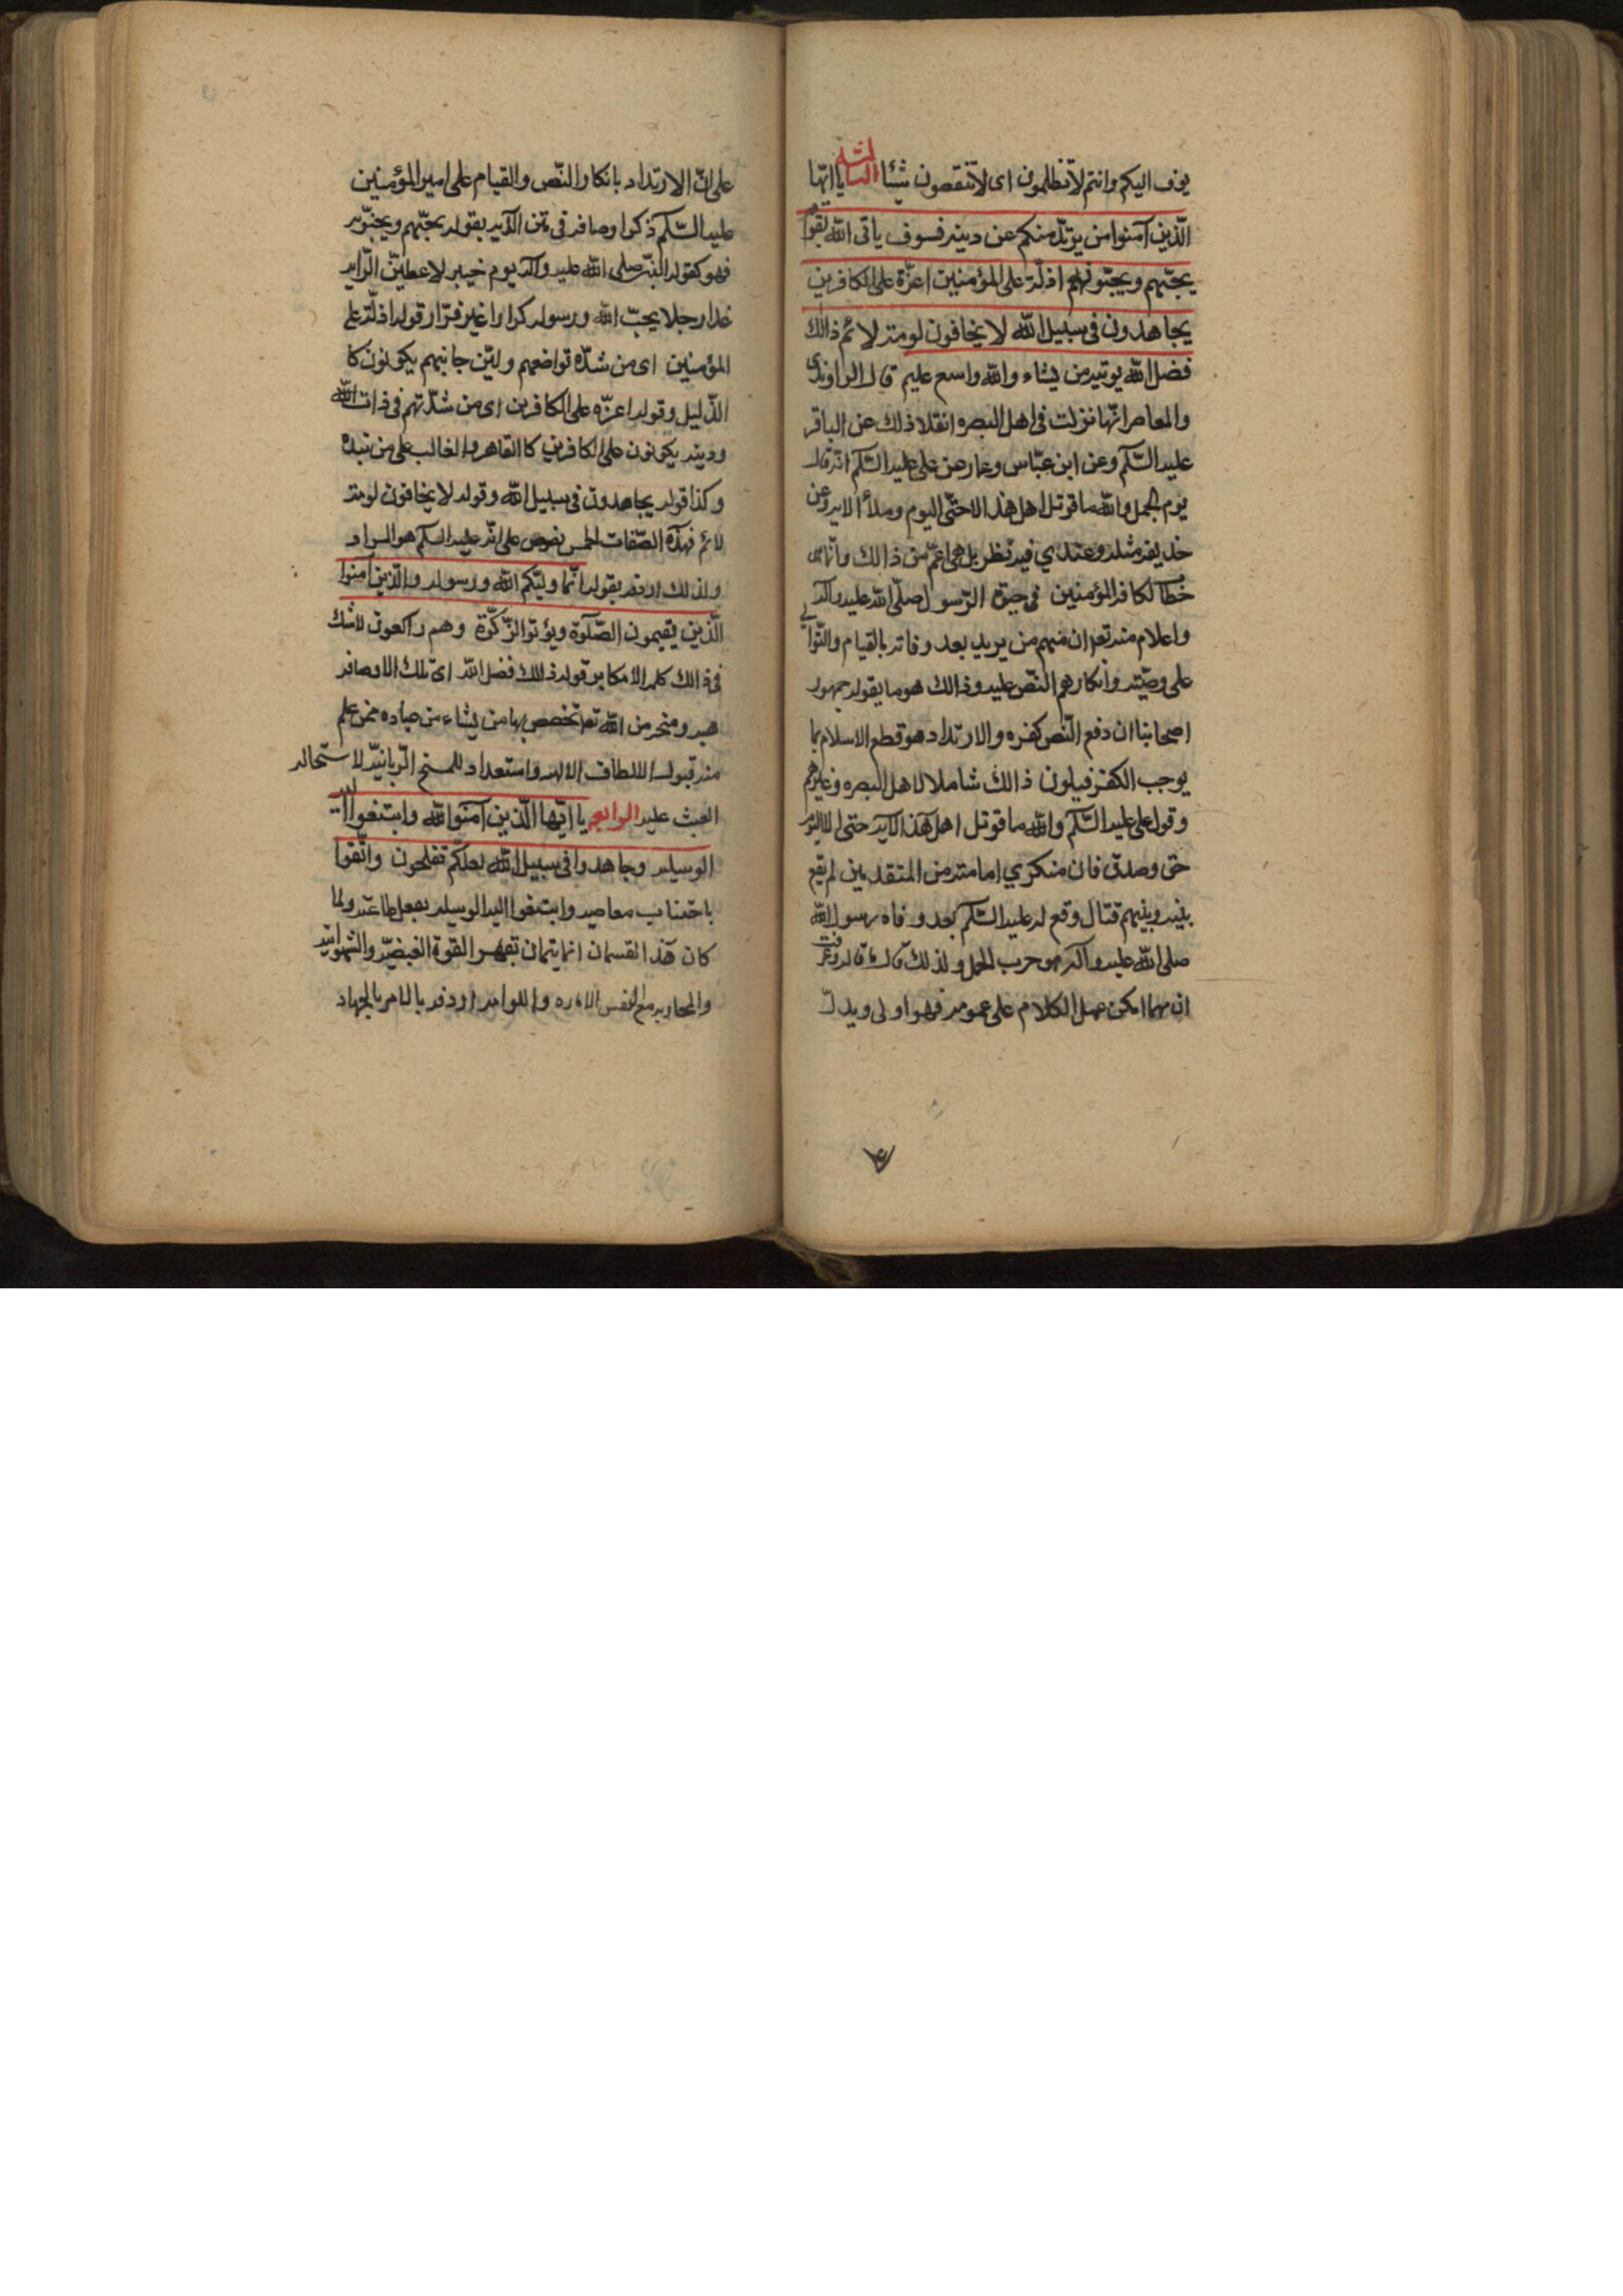 يوف اليكم وانتم لا تظلمون اى لا تنقصون شيئا الثالثة يا ايّها
الّذين آمنوا من يرتدّ منكم عن دينه فسوف ياتى اللّه بقوم
يحبّهم ويحبّونهم اذلّة على المؤمنين اعزّة على الكافرين
يجاهدون فى سبيل اللّه لا يخافون لومة لائم ذالك
فضل اللّه يوتيه من يشاء واللّه واسع عليم قال الراوندى
والمعاصر انّها نزلت فى اهل البصره انقلا ذلك عن الباقر
عليه السّلم وعن ابن عبّاس وعمار عن على عليه السّلم انّه قال
يوم الجمل واللّه ما قوتل اهل هذه الاحتّى اليوم وملأ الايه وعن
حذيفه مثله وعندي فيه نظر بل هى اعمّ من ذالك وانّها هى
خطاب لكافة المؤمنين فى حيوة الرّسول صلّى اللّه عليه وآله
واعلام منه تعه ان منهم من يريد بعد وفاته بالقيام والتّوالي
على وصيّته وانكارهم النّص عليه وذالك هو ما يقوله جمهور
اصحابنا ان دفع النّص كفره والارتداد هو قطع الاسلام بما
يوجب الكفر فيلون ذالك شاملا لاهل البصره وغيرهم
وقول على عليه السّلم واللّه ما قوتل اهل هذه الآيه حتى الااليوم
حق وصدق فان منكري امامته من المتقدمين لم يقع
بينه وبينهم قتال وقع له عليه السّلم بعد وفاه رسول اللّه
صلى اللّه عليه وآله هو حرب الجمل ولذلك قال ما قاله وقد عرفت
ان مهما امكن حمل الكلام على عمومه فهو اولى ويدلّ
على انّ الارتداد بانكار النّص والقيام على امير المؤمنين
عليه السّلم ذكر اوصافه فى متن الآيه بقوله يحبّهم ويحبّونه
فهو كقول النبّى صلى اللّه عليه وآله يوم خيبر لاعطينّ الرّايه
غدا رجلا يحبّ اللّه ورسوله كرارا غير فرّار وقوله اذلّة على
المؤمنين اى من شدّه تواضعهم ولين جانبهم يكونون كا
الذّليل وقوله اعزّه على الكافرين اى من شدّتهم فى ذات اللّه
ودينه يكونون على الكافرين كا القاهر والغالب على من
وكذا قوله يجاهدون فى سبيل اللّه وقوله لا يخافون لومة
لائم فهذه الصّفات الخمس نصوص على انّه عليه السلم هو المراد
ولذلك اردفه بقوله انّما وليّكم اللّه ورسوله والّذين آمنوا
الّذين يقيمون الصّلوة ويؤتوا الزّكوة وهم راكعون لاشك
فى ذالك كله الا مكابر قوله ذالك فضل اللّه اى تلك الاوصاف
هبه ومنحه من اللّه تعه تخصص بها من يشاء من عباده ممن علم
منه قبول الالطاف الالهيه واستعداد للمنح الرّبانيّه لاستحاله
العبث عليه الرابعه يا ايّها الّذين آمنوا اللّه وابتغوا اليه
الوسيله وجاهدوا فى سبيل اللّه لعلّكم تفلحون واتّقوا
باجتناب معاصيه وابتغوا اليه الوسيله بفعل طاعته ولما
كان هذا القسمان انما يتمان بقهر القوة الغضبيّه والشهوانيه
والمحاربه مع النفس الاماره واللوامه اردفه بالامر بالجهاد